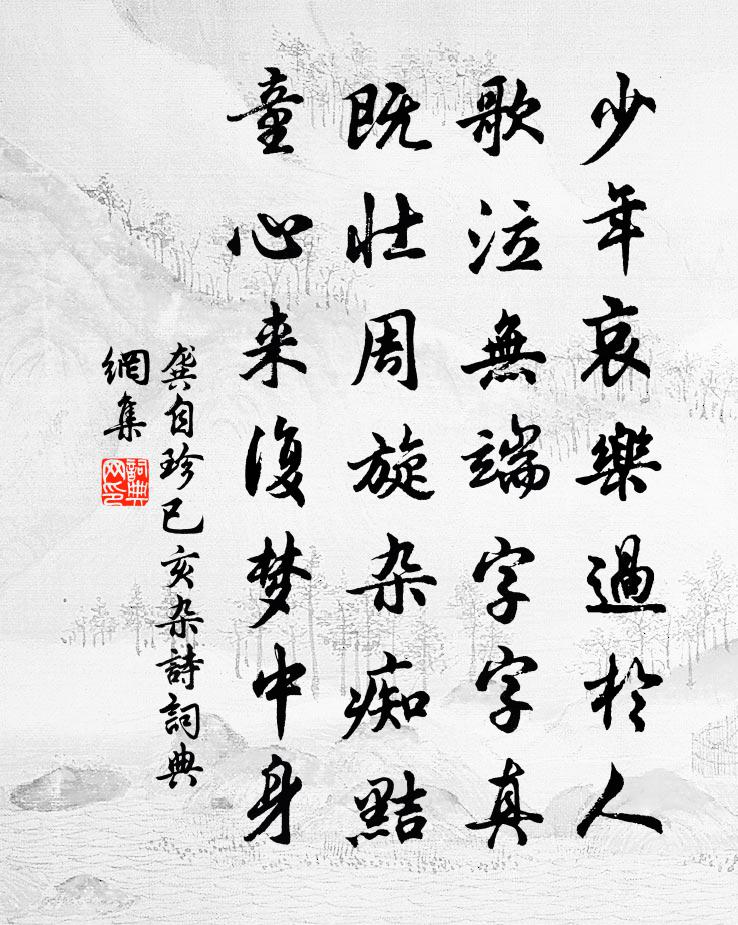 少年哀樂過於人
歌泣無端字字真
既壮周旋杂痴黠
童心来復梦中身
龚自珍已亥杂詩詞典
網集
詞典
网印